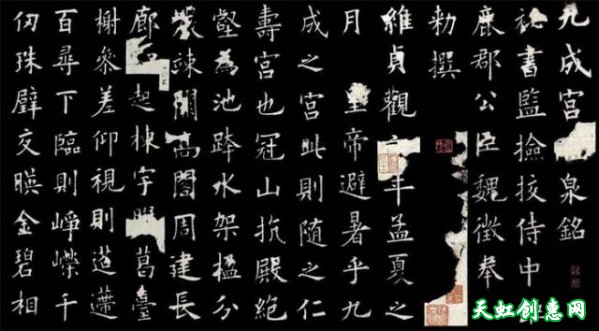 九成宮泉銘
祕書監撿挍侍中
鹿郡公臣魏徵奉
勑撰
維貞觀年孟夏之
月 皇帝避暑乎九
成之宮此則随之仁
壽宮也冠山抗殿絕
壑為池跨水架楹分
竦闕髙閣周建長
廊起棟宇葛臺
榭參差仰視則迢遰
百尋下臨則崢嶸千
仞珠壁交暎金碧相
天虹创意网